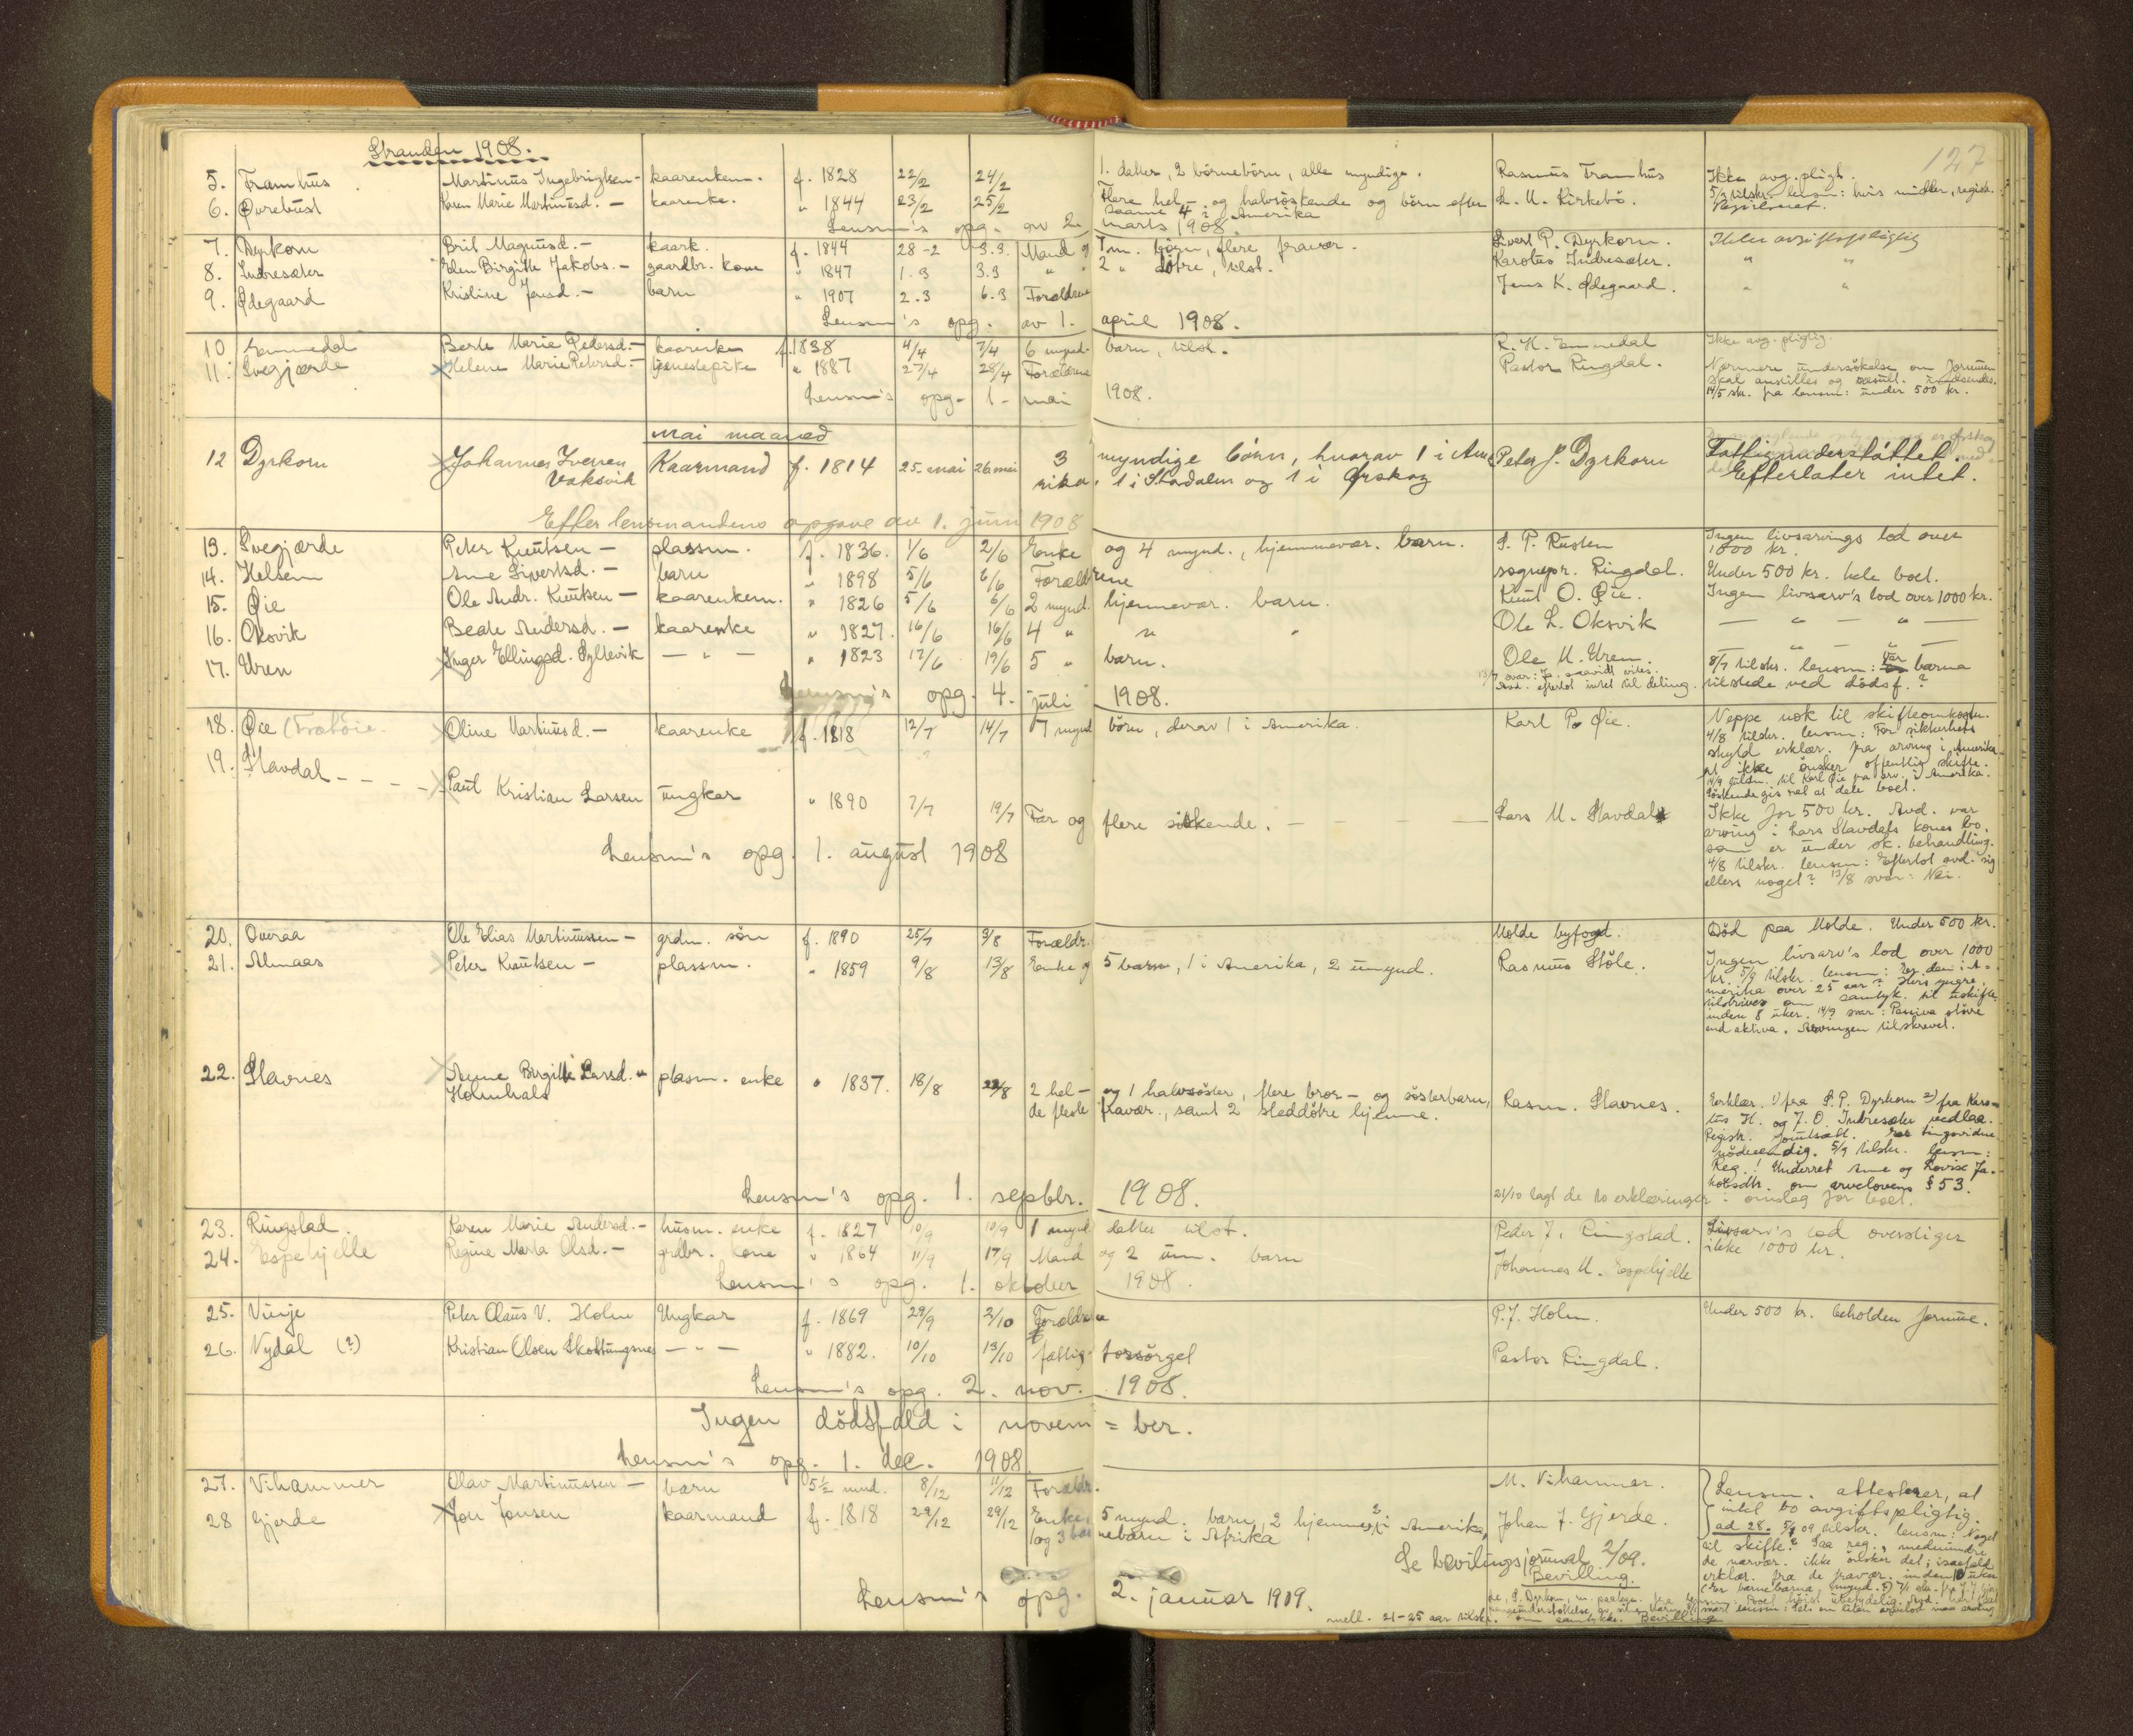 Stranden 1908.
127
5. Framhus. Martinus Ingebrigtsen - kaarenkem. f. 1828 22/2 24/2 1. datter, 2 börnebörn, alle myndige. Rasmus Framhus Ikke avg. pligt.
6. Overebust Karen Marie Martinusd. - kaarenke. " 1844 23/2 25/2 Flere hel- og halvsöskende og börn efter L. M. Kirkebö. 5/3 tilskr. lensm: hvis midler, registr.
saame 4 i Amerika
Lensm's opg. av 2. marts 1908.
7. Dyrkorn Brit Magnusd. - kaark. f. 1844 28-2 3.3. Mand og 7 m. börn, flere fravær. Sivert P. Dyrkorn. Ikke avgiftspligtig
8. Indresæter Elen Birgitte Jakobs. - gaardbr. kone " 1847 1.3 3.3 " " 2 " döttre, tilst. Karolus Indresæter. " "
9. Ødegaard Kristine Jensd. - barn " 1907 2.3 6.3 Forældrene Jens K. Ødegaard. " "
Lensm's opg. av 1. april 1908.
10 Emmedal Berte Marie Pedersd. - kaarenke f. 1838 4/4 7/4 6 mynd. barn, tilst. R. K. Emmedal Ikke avg. pligtig.
11. Svegjærde Helene Marie Petersd. - tjenestepike " 1887 27/4 28/4 Forældrene Pastor Ringdal. Nærmere undersökelse om formuen
skal anstilles og result. indsendes.
14/5 skr. fra lensm: under 500 kr.
Lensm's opg. 1. mai 1908.
mai maaned
12 Dyrkorn Johannes Iversen Kaarmand f. 1814 25. mai 26 mai 3 myndige börn, hvorav 1 i Ame Peter J. Dyrkorn Fattigunderstöttet.
Vaksvik rika, 1 i Stordalen og 1 i Ørskog Efterlater intet.
Efter lensmandens opgave av 1. juni 1908
13. Svegjærde Peter Knutsen - plassm. f. 1836. 1/6 2/6 Enke og 4 mynd., hjemmevær. barn. S. P. Rusten Ingen livsarvings lod over
1000 kr.
14. Helsem Ane Sivertsd. - barn " 1898 5/6 6/6 Forældrene sognepr. Ringdal. Under 500 kr. hele boet.
15. Øie Ole Andr. Knutsen - kaarenkem. " 1826 5/6 6/6 2 mynd. hjemmevær. barn. Knut O. Øie. Ingen livsarv's lod over 1000 kr.
16. Oksvik Beate Andersd. - kaarenke " 1827. 16/6 16/6 4 " " " Ole L. Oksvik — " — " —
17. Uren Inger Ellingsd. Syltevik — " — " 1823 17/6 19/6 5 " barn. Ole M. Uren. 8/7 tilskr. lensm: Var barna
tilstede ved dödsf.?
13/7 svar: Ja. saavidt vites.
Avd. efterlot intet til deling.
Lensm's opg. 4. juli 1908.
18. Øie Oline Martinusd. - kaarenke f. 1818 12/7 14/7 7 mynd börn, derav 1 i Amerika. Karl P. Øie. Neppe nok til skifteomkostn.
4/8 tilskr. lensm: For sikkerheds
skyld erklær. fra arving i Amerika
at ikke önsker offentlig skifte.
19. Stavdal - - - Paul Kristian Larsen ungkar " 1890 7/7 19/7 Far og flere söskende. - - - - Lars M. Stavdal Ikke for 500 kr. Avd. var
arving i Lars Stavdals kones bo,
som er under sk. behandling.
4/8 tilskr. lensm: Efterlot avd. sig
ellers noget? 13/8 svar: Nei.
Lensm's opg. 1. august 1908
20. Overaa Ole Elias Martinussen - grdm. sön f. 1890 25/7 3/8 Forældr. Molde byfogd. Död paa Molde. Under 500 kr.
21. Almaas Peter Knutsen - plassm. " 1859 9/8 13/8 Enke og 5 barn, 1 i Amerika, 2 umynd. Rasmus Stöle. Ingen livsarv's lod over 1000
kr. 5/9 tilskr. lensm: Er den i A-
merika over 25 aar? Hvis yngre,
tilskrives om samtyk. til uskifte
inden 8 uker. 14/9 svar: Passiva större
end aktiva. Arvingen tilskrevet.
22. Stavnes Anne Birgitte Larsd. plasm. enke " 1837. 18/8 22/8 2 hel- og 1 halvsöster, flere bror- og sösterbarn, Rasm. Stavnes. Erklær. 1) fra S. P. Dyrkorn 2) fra Karo-
Holmhals de fleste fravær., samt 2 steddötre hjemme. lus K. og J. O. Indresæter vedlaa.
nödvendig. 5/9 tilskr. lensm:
Reg.! Underret Ane og Lovise Ja-
kobsdtr. om arvelovens § 53.
Lensm's opg. 1. septbr. 1908. 21/10 lagt de to erklæringer i omslag for boet.
23. Ringstad. Karen Marie Andersd. - husm. enke f. 1827 10/9 10/9 1 mynd datter tilst. Peder J. Ringstad. Livsarv's lod overstiger
ikke 1000 kr.
24. Espehjelle Regine Marta Olsd. - grdbr. kone " 1864 11/9 17/9 Mand og 2 um. barn Johannes M. Espehjelle
Lensm's opg. 1. oktober 1908.
25. Vinje Peter Claus V. Holm Ungkar f. 1869 29/9 2/10 Forældre P. J. Holm. Under 500 kr. beholden formue.
26. Nydal (?) Kristian Olsen Skottungsnes — " — " 1882. 10/10 13/10 fattig- forsörget Pastor Ringdal.
Lensm's opg. 2. nov. 1908.
Ingen dödsfald i novem = ber.
Lensm's opg. 1. dec. 1908
27. Vihammer Olav Martinussen - barn 5½ mnd. 8/12 11/12 Forældr. M. Vihammer. Lensm. attesterer, at
intet bo avgiftspligtig.
28 Gjerde Jon Jonsen kaarmand f. 1818 22/12 29/12 Enke, 5 mynd. barn, 2 hjemme, 3 i Amerika, Johan J. Gjerde. ad 28. 5/1 09 tilskr. lensm: Noget
og 3 bar nebarn i Afrika til skifte?
Se bevilingsjournal 2/09.
Bevilling.
Lensm's opg. 2. januar 1909.
mell. 21-25 aar tilskr. om samtykke. Bevilling